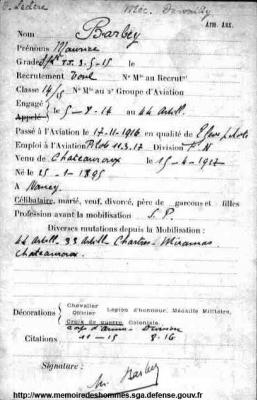 C. Leclerc
Arm. Anx.
Nom Barbey
Prénoms Maurice
Grade S/Lt 3-5-15 le
Recrutement Toul N° Mle au Recrut^t
Classe 14/15 N° Mle au 2e Groupe d'Aviation
Engagé
Appelé le 5-8-14 au 44 Artill.
Passé à l'Aviation le 17-11-1916 en qualité de Eleve pilote
Emploi à l'Aviation Pilote 11.3.17 Division F. N
Venu de Chateauroux le 15-4-1917
Né le 25-1-1895
à Nancy
Célibataire, marié, veuf, divorcé, père de garçons et filles
Profession avant la mobilisation S. P.
Diverses mutations depuis la Mobilisation :
44 Artill. 33 Artill Chartres - Miramas
Chateauroux.
Décorations
Chevalier
Officier
Légion d'honneur, Médaille Militaire,
Croix de guerre Coloniale,
Citations 11-15 8-16
Signature :
M. Barbey
http://www.memoiredeshommes.sga.defense.gouv.fr